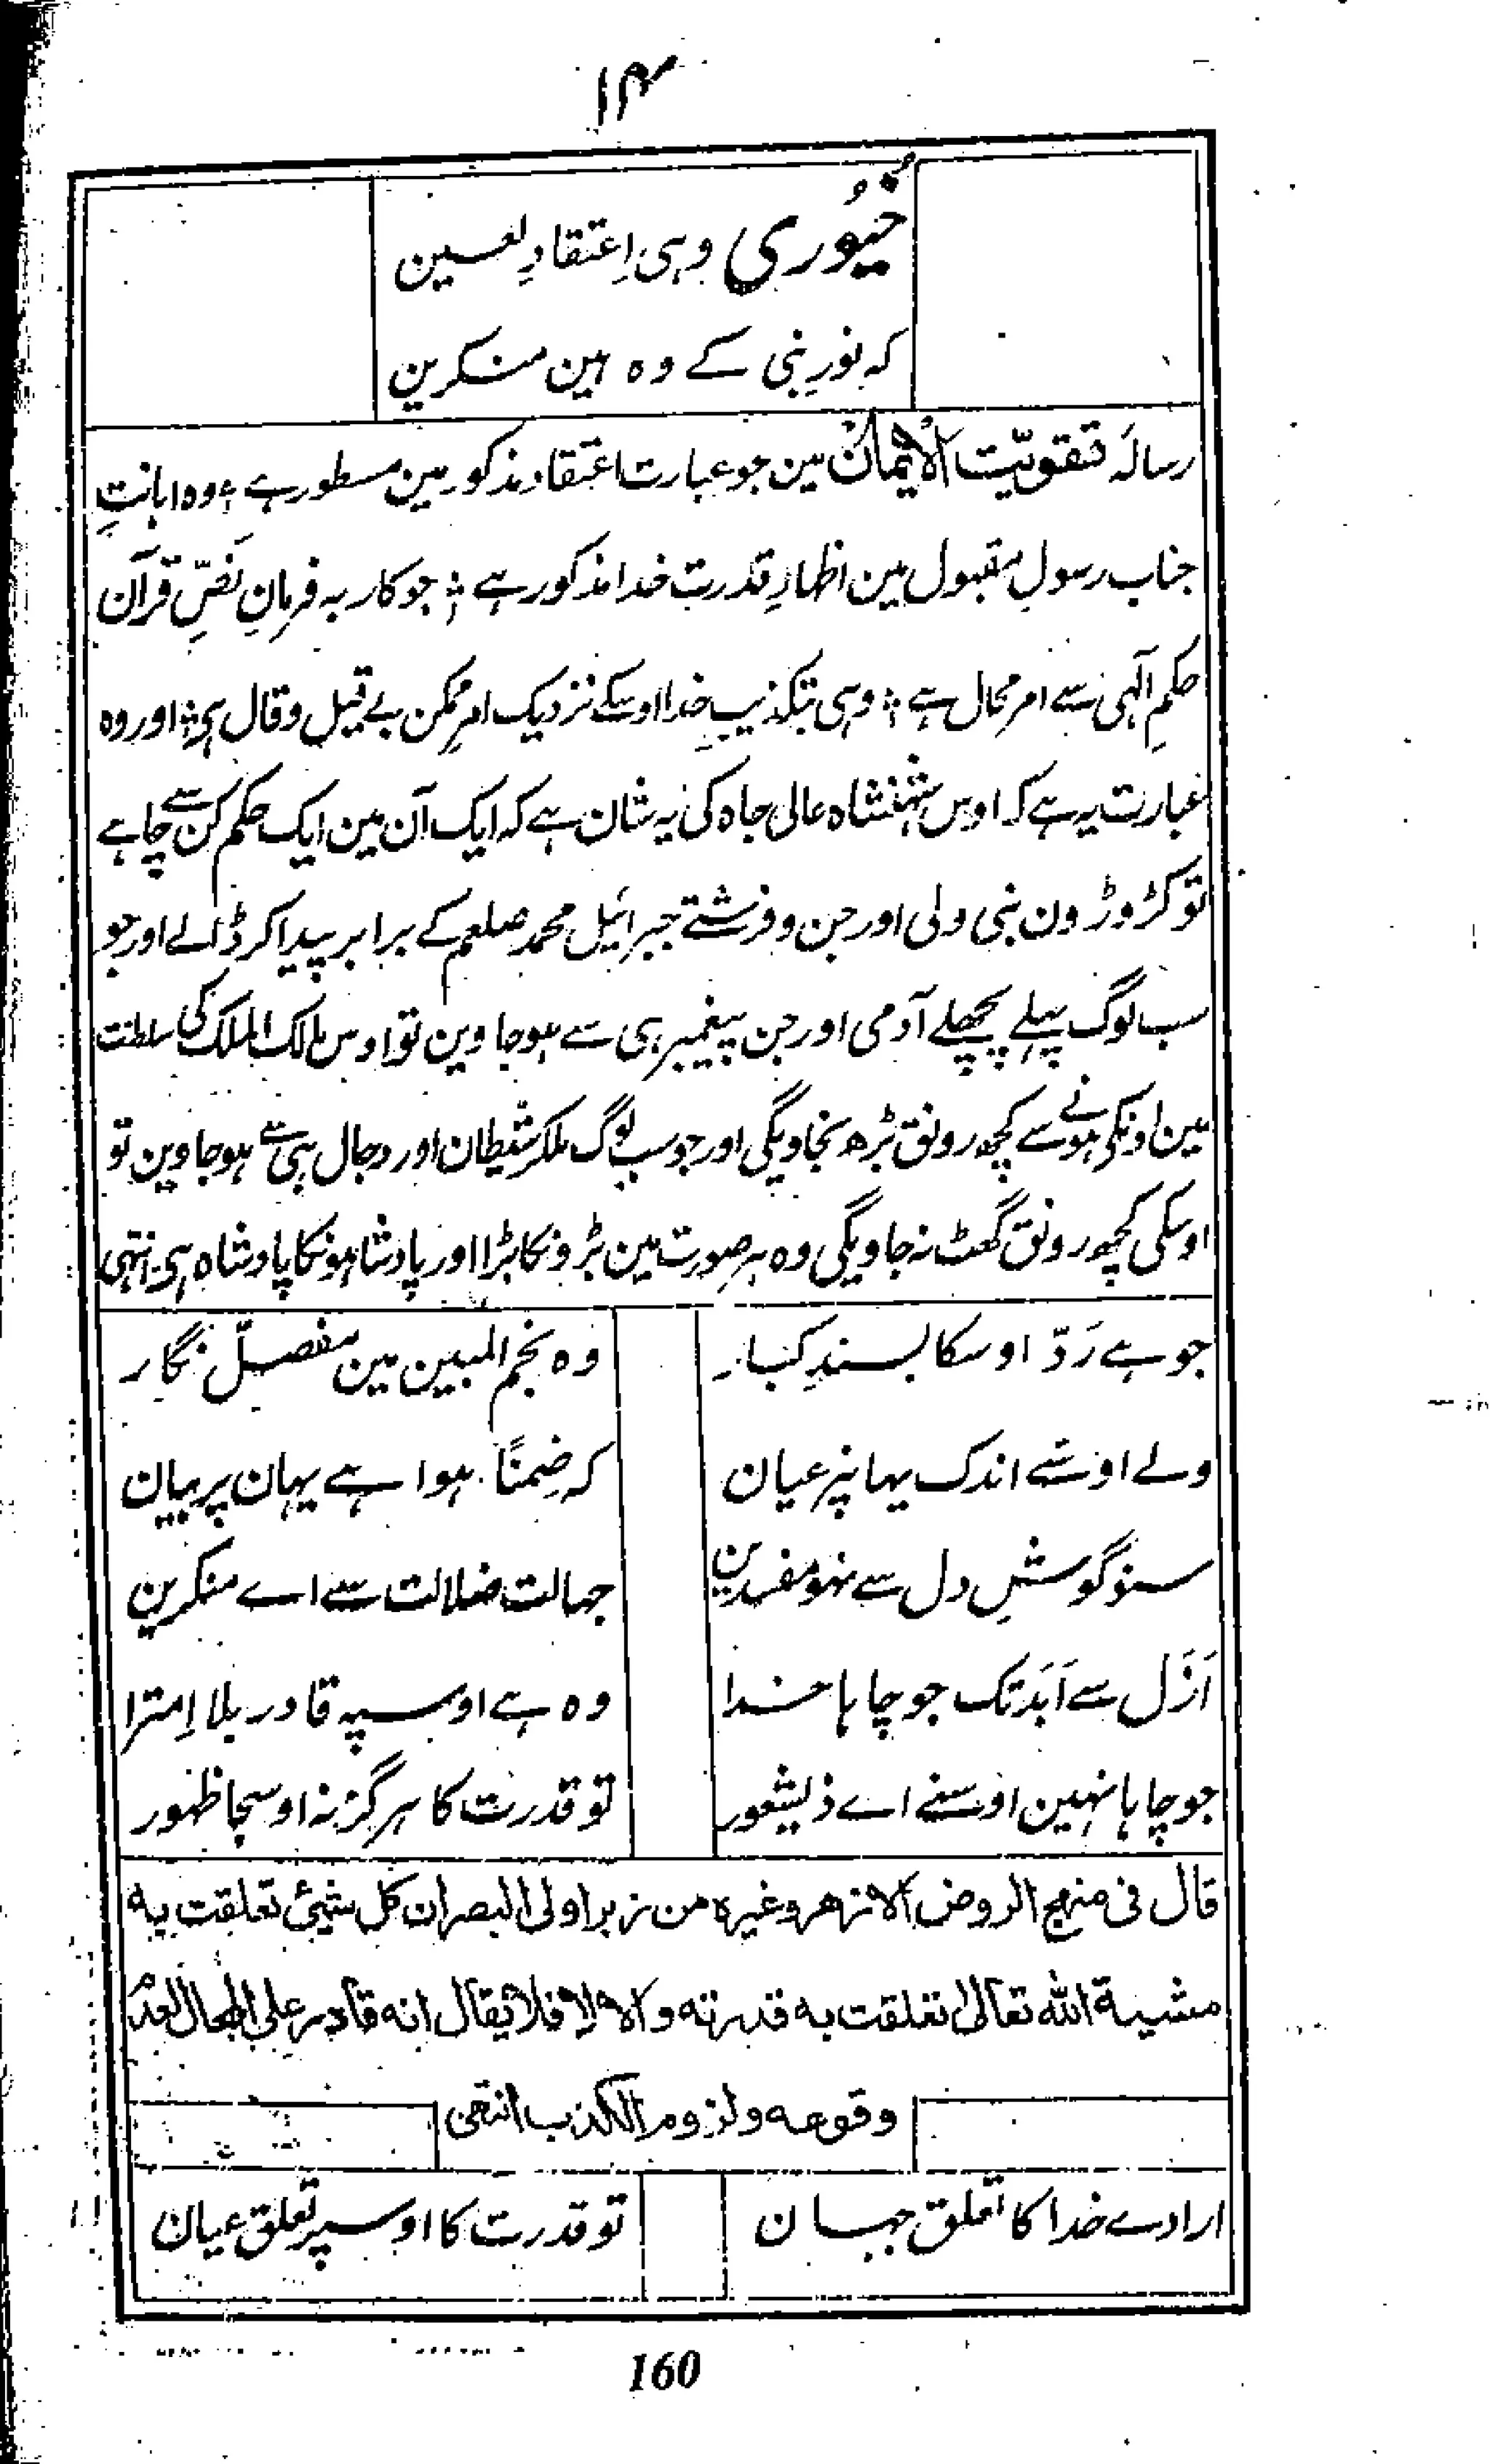 ۱۴
خیوُری وہی اِعتقادِ لعسین
کہ نورِ نبی کے وہ ہین منکرین
رسالہَ تقویّت الاِیمان مین جو عبارت اعتقاد مذکور مین مسطور ہے ؛ وہ اہانتِ
جناب رسولِ مقبول مین اظہارِ قدرت خدا مذکور ہے ؛ جو کار بہ فرمانِ نَصِّ قرآن
حکمِ آلہی سے امر محال ہے ؛ وہی تکذیبِ خدا اوسکے نزدیک امرِ ممکن بے قیل و قال ہی ؛ اور وہ
عبارت یہ ہے کہ اوس شہنشاہ عالی جاہ کی یہ شان ہے کہ ایک آن مین ایک حکم کن سے چاہے
تو کڑوڑون نبی ولی اور جن و فرشتے جبرائیل محمد صلعم کے برابر پیدا کر ڈالے اور جو
سب لوگ پہلے پچھلے آدمی اور جن پیغمبر ہی سے ہو جاوین تو اوس مالک الملک کی سلطنت
مین اونکی ہونے سے کچھ رونق بڑھ نجاویگی اور جو سب لوگ ملکر شیطان اور دجال ہی سے ہو جاوین تو
اوسکی کچھ رونق گھٹ نہ جاویگی وہ ہر صورت مین بڑونکا بڑا اور پادشاہونکا پادشاہ ہی انتہی
جو ہے رَدّ اوسکا بسندِ کبار وہ نجم المبین مین مفصل نگار
ولے اوسّے اندک یہانپر عیان کہ ضِمنًا ہوا ہے یہان پر بیان
سنو گوشِ دل سے نہو مفسدین جہالت ضلالت سے اے منکرین
اَزَل سے اَبَد تک جو چاہا خدا وہ ہے اوسپہ قادر بلا اِمترا
جو چاہا نہین اوسنے اے ذیشعور تو قدرت کا ہرگز نہ اوسجا ظہور
قال فی منہج الروض الازهر وغیرہ من زبر اولی البصر ان کل شیئ تعلقت بہ
مشیة اللہ تعالیٰ تعلقت بہ قدرتہ والا فلا یقال انہ قادر علی المحال لعدم
وقوعہ ولزوم الکذب انتھی
ارادے خدا کا تعلق جہان تو قدرت کا اوسپر تعلق عیان
160